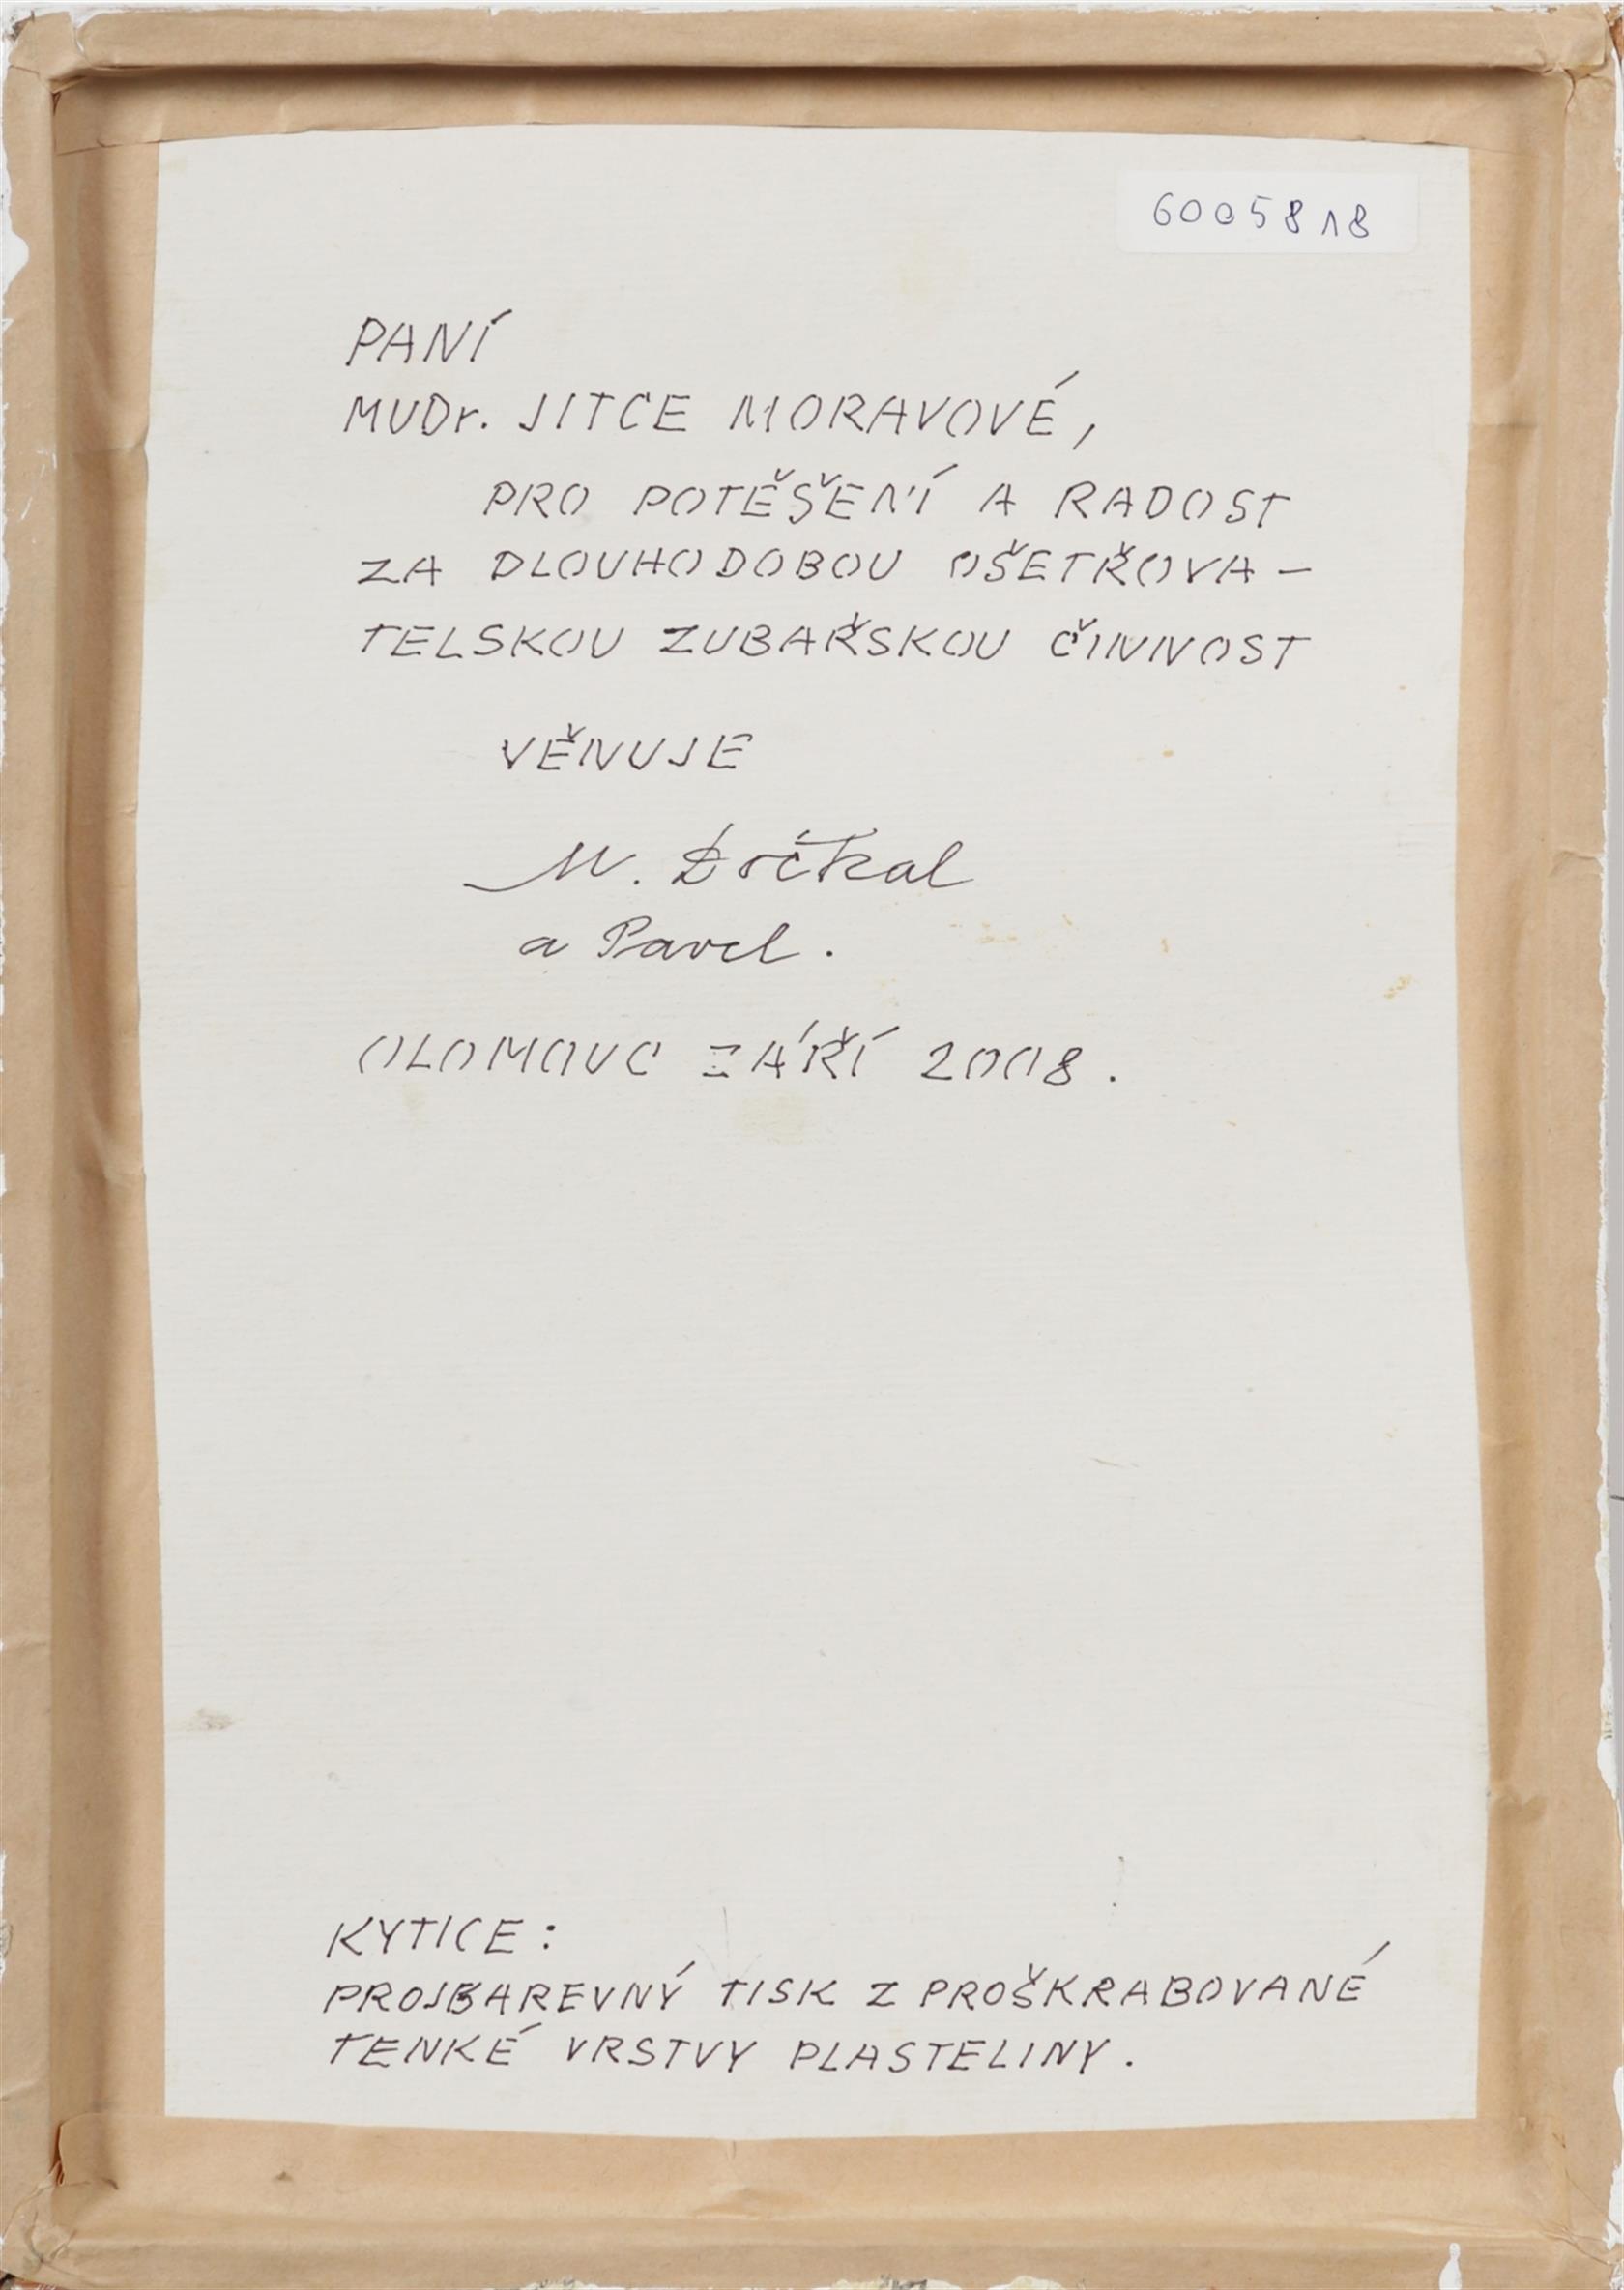 6005818
PANÍ
MUDr. JITCE MORAVOVÉ,
PRO POTĚŠENÍ A RADOST
ZA DLOUHODOBOU OŠETŘOVA-
TELSKOU ZUBAŘSKOU ČINNOST
VĚNUJE
M. Dočkal
a Pavel.
OLOMOUC ZÁŘÍ 2008.
KYTICE:
PROJBAREVNÝ TISK Z PROŠKRABOVANÉ
TENKÉ VRSTVY PLASTELINY.